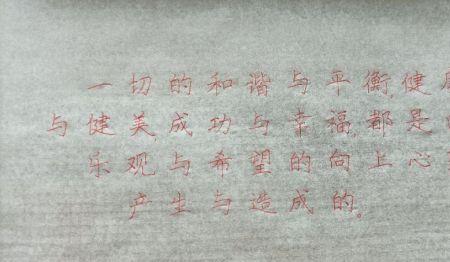 一切的和谐与平衡,健
与健美,成功与幸福,都是
乐观与希望的向上心
产生与造成的。